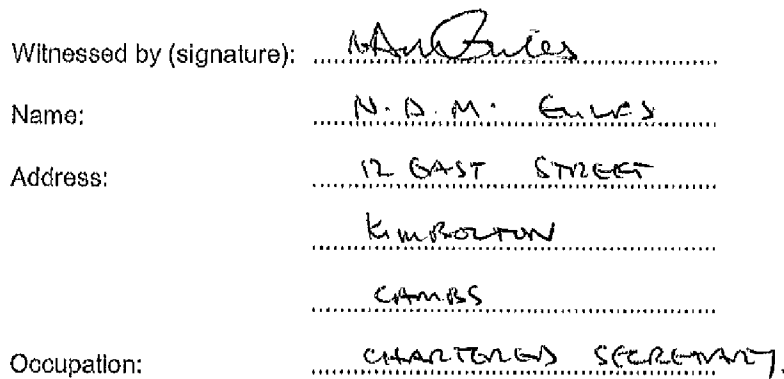 Witnessed by (signature):
Name: N. D. M.
Address: 12 EAST STREET
KIMBOLTON
CAMBS
Occupation: CHARTERED SECRETARY